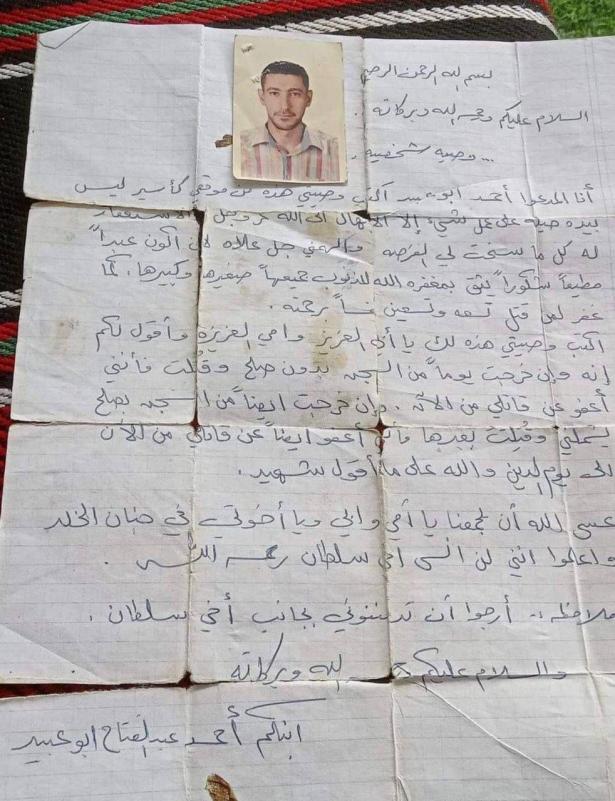 بسم الله الرحمن الرحيم
السلام عليكم ورحمة الله وبركاته .
... وصيه شخصيه .
أنا المدعوا أحمد ابو عبيد أكتب وصيتي هذه من موقعي كأسير ليس
بيده حيله على عمل شيء إلا الابتهال الى الله عز وجل الاستغفار
له كل ما سنحت لي الفرصه والهمني جل علاه لان أكون عبداً
مطيعاً شكوراً يثق بمغفره الله للذنوب جميعهاً صغيرها وكبيرها . كما
غفر لمن قتل تسعه وتسعين نفساً برحمته .
اكتب وصيتي هذه لك يا أبي العزيز وامي العزيزة وأقول لكم
إنه وإن خرجت يوماً من السجن بدون صلح وقُتلت فأنني
أعفو عن قاتلي من الآن . وإن خرجت ايضاً من السجن بصلح
يشملني وقُتلت بعدها فأني أعفو ايضاً عن قاتلي من الآن
الى يوم الدين والله على ما أقول شهيد .
عسى الله أن يجمعنا يا أمي وابي ويا أخوتي في جنان الخلد
واعلموا انني لن انسى اخي سلطان رحمه الله .
ملاحظه :- أرجوا أن تدفنوني بجانب أخي سلطان .
والسلام عليكم ورحمة الله وبركاته
ابنكم أحمد عبدالفتاح ابو عبيد